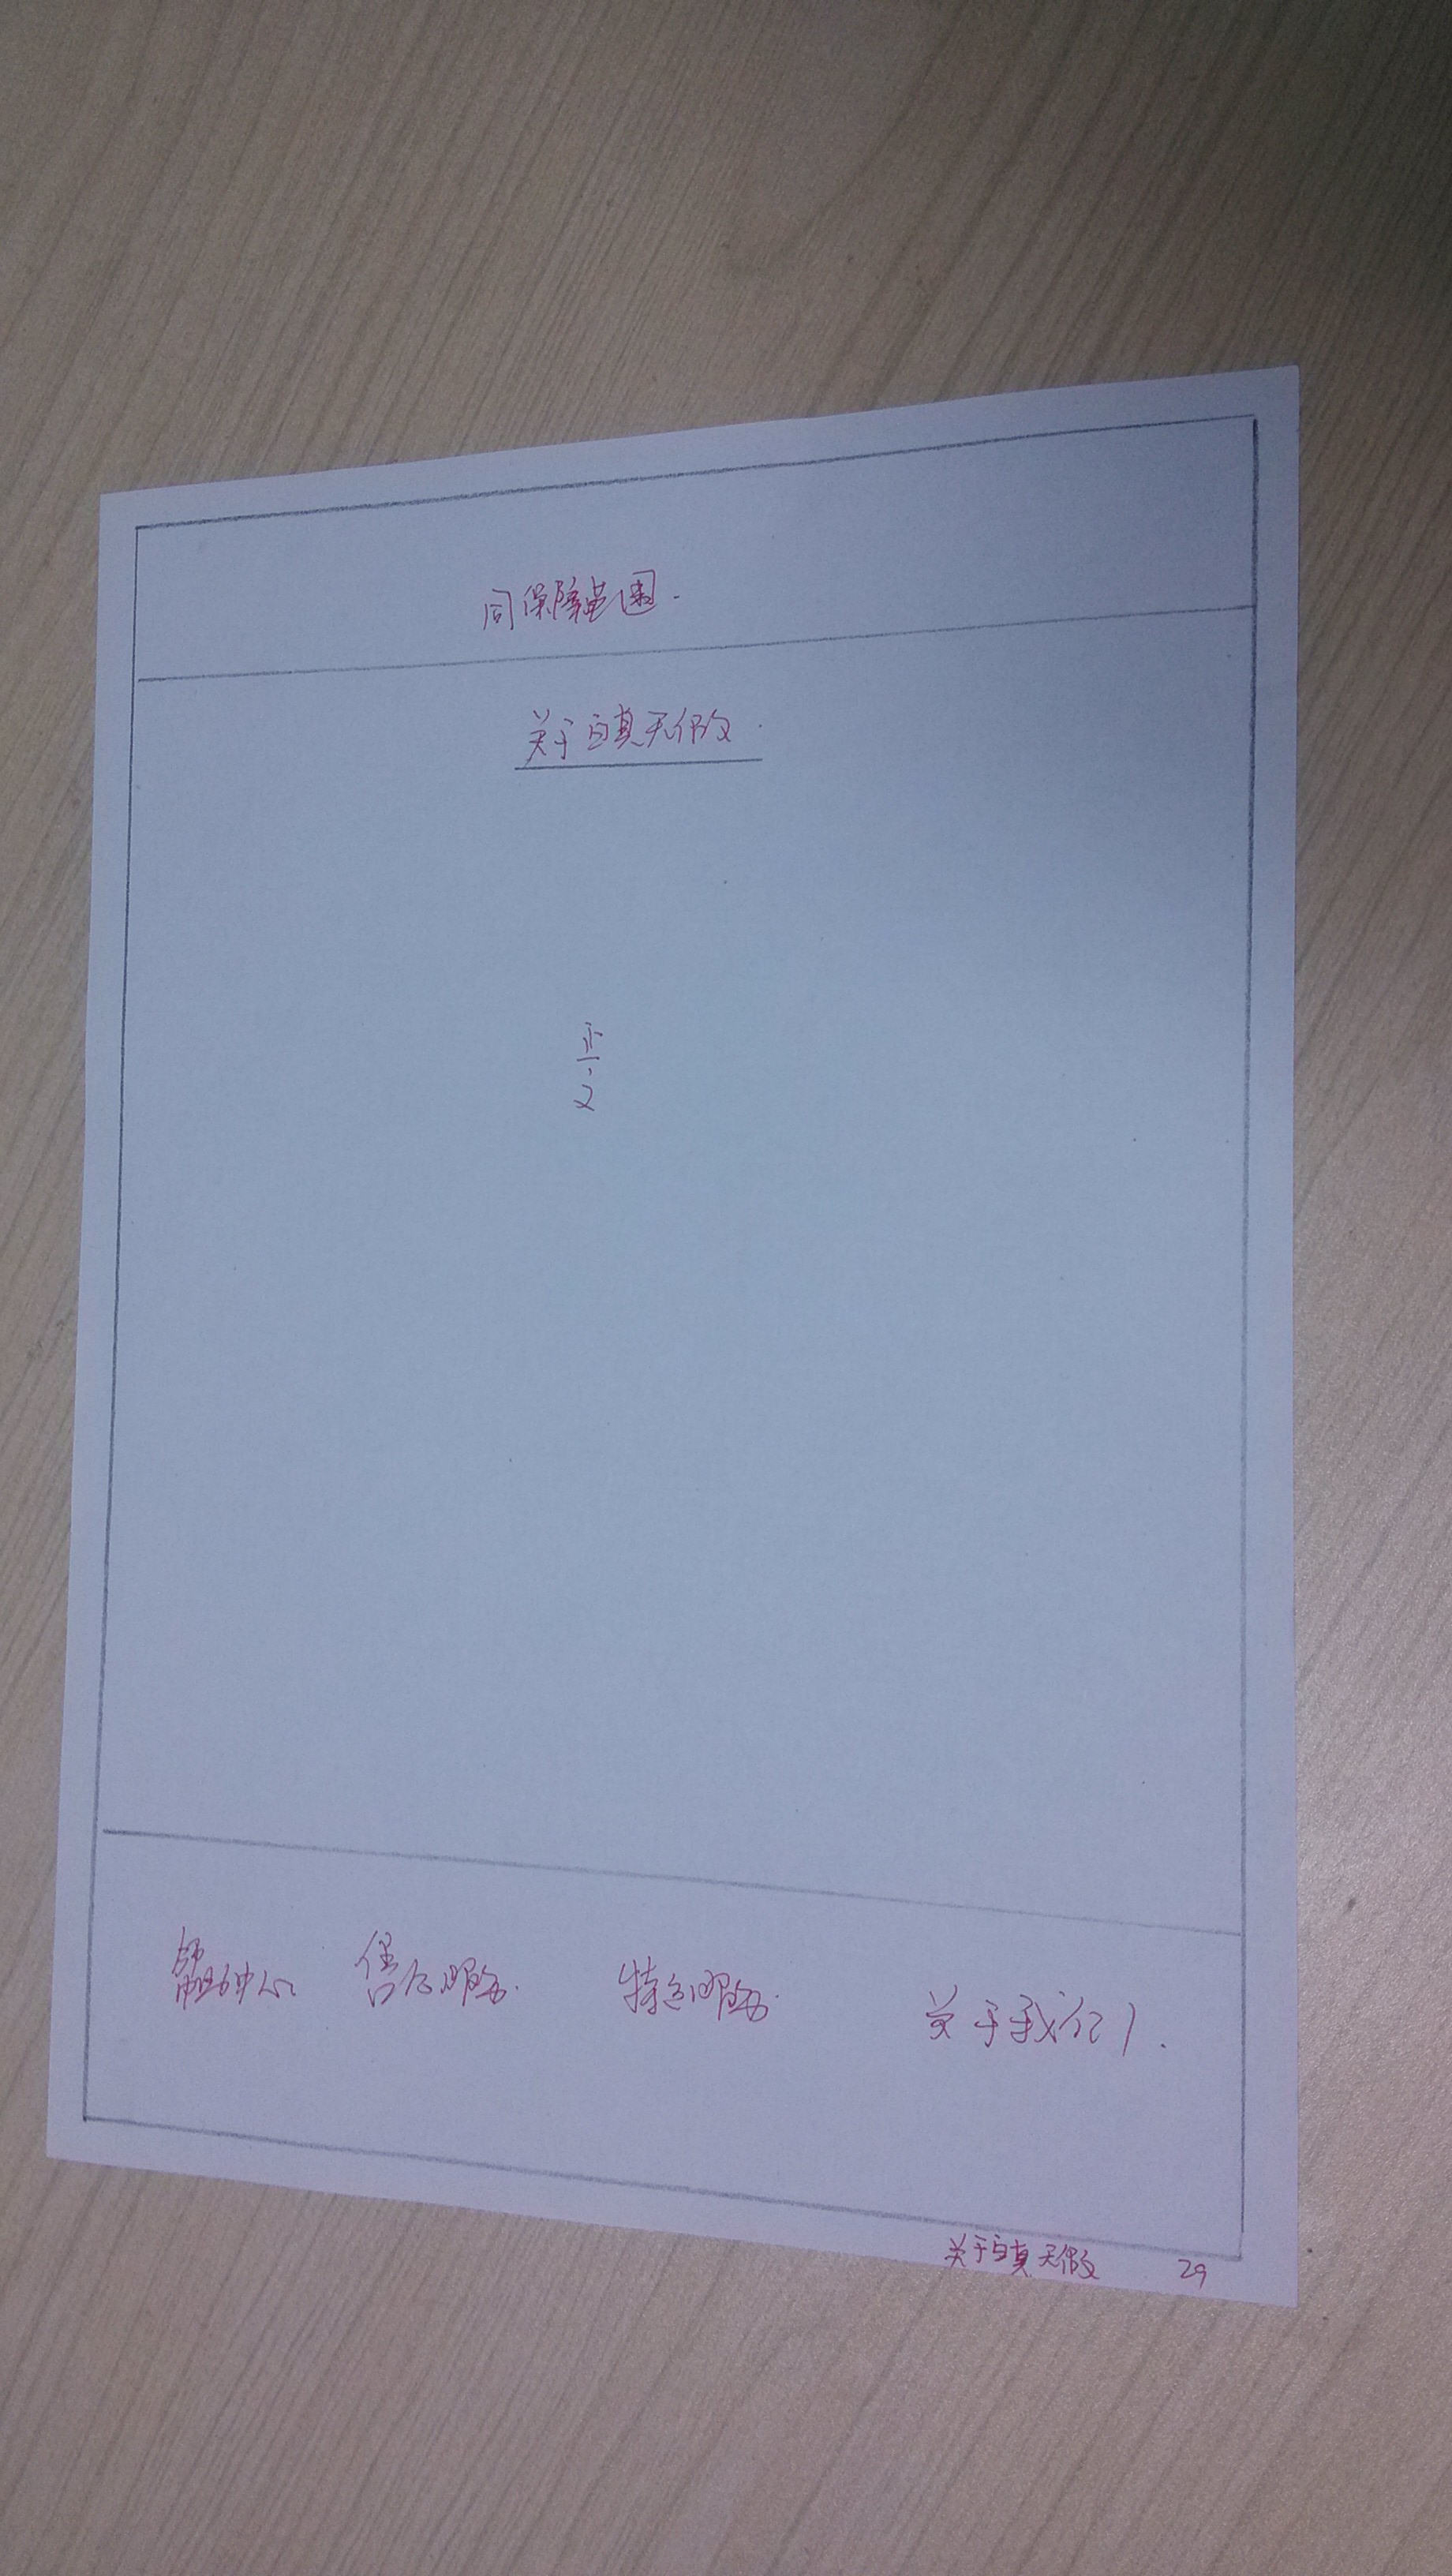 同保障范围.
关于白真无假.
正文
帮助中心 售后服务. 特色服务. 关于我们.
关于白真无假 29